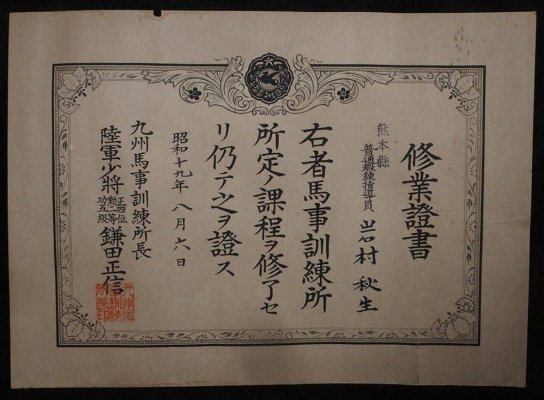 修業證書
熊本縣
普通鍛錬指導員 岩村秋生
右者馬事訓練所
所定ノ課程ヲ修了セ
リ仍テ之ヲ證ス
昭和十九年八月六日
九州馬事訓練所長
陸軍少將 正四位 勲二等 功五級 鎌田正信